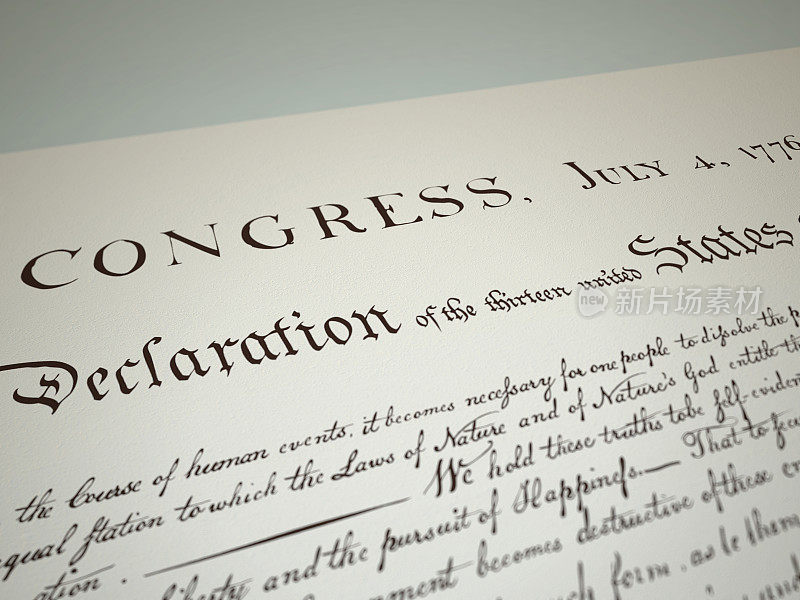 CONGRESS, JULY 4, 1776
Declaration of the thirteen united States
the Course of human events, it becomes necessary for one people to dissolve the p
equal station to which the Laws of Nature and of Nature's God entitle th
ation. We hold these truths to be self-eviden
liberty and the pursuit of Happiness. — That to secu
rnment becomes destructive of these en
ch form, as to them
new 新片场素材